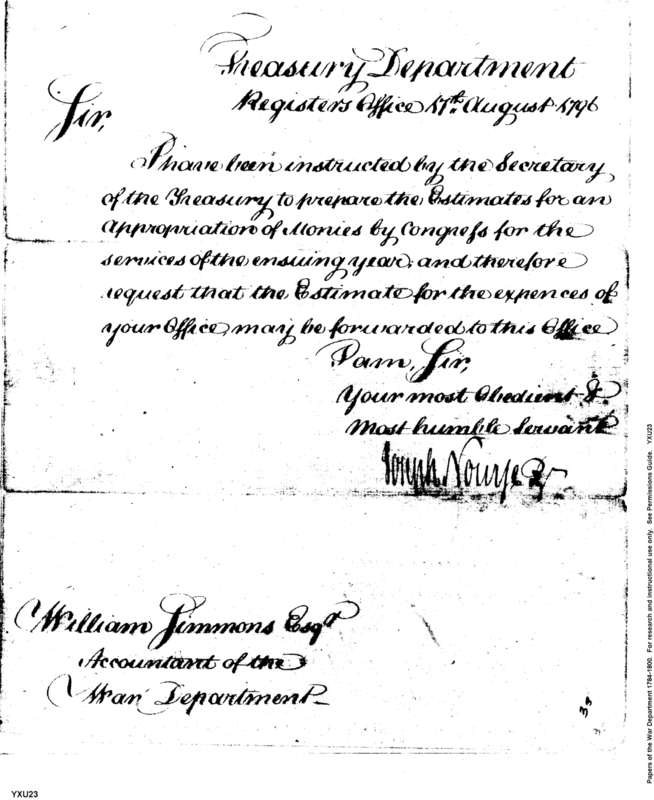 Treasury Department
Registers Office 17th. August 1796
Sir,
I have been instructed by the Secretary
of the Treasury to prepare the Estimates for an
Appropriation of Monies by Congress for the
services of the ensuing year; and therefore
request that the Estimate for the expences of
your Office, may be forwarded to this Office
I am, Sir,
Your most Obedient &
Most humble Servant
Joseph Nourse
William Simmons Esqr
Accountant of the
War Department
33
YXU23
Papers of the War Department 1784-1800. For research and instructional use only. See Permissions Guide. YXU23